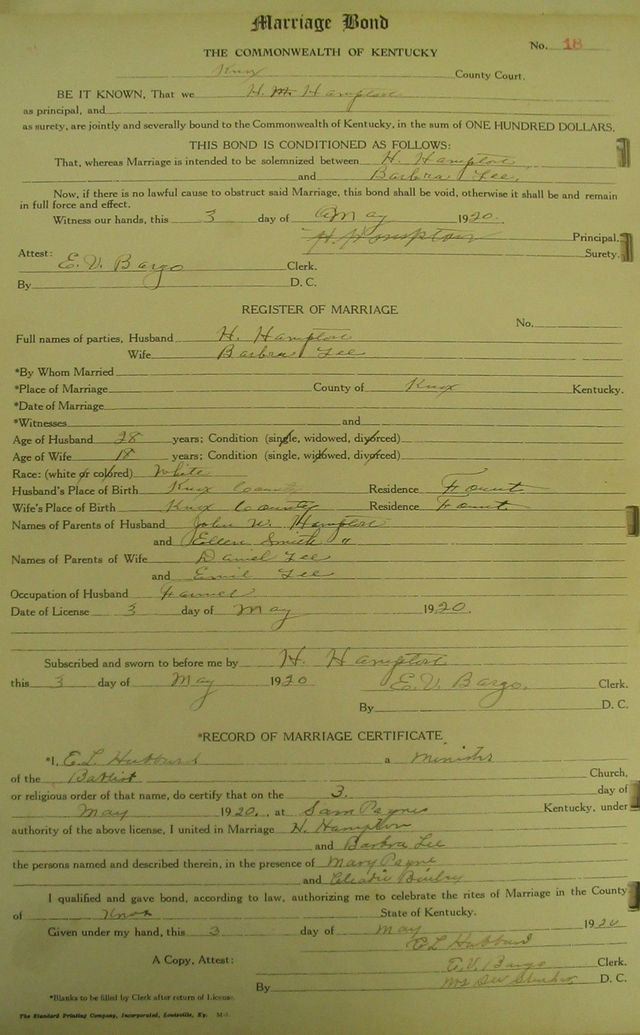 Marriage Bond
No. 18
THE COMMONWEALTH OF KENTUCKY
Knox County Court.
BE IT KNOWN, That we H. M. Hampton
as principal, and
as surety, are jointly and severally bound to the Commonwealth of Kentucky, in the sum of ONE HUNDRED DOLLARS.
THIS BOND IS CONDITIONED AS FOLLOWS:
That, whereas Marriage is intended to be solemnized between H. Hampton
and Barbra Lee,
Now, if there is no lawful cause to obstruct said Marriage, this bond shall be void, otherwise it shall be and remain
in full force and effect.
Witness our hands, this 3 day of May 1920.
H. Hampton Principal.
Surety.
Attest:
E. V. Bargo Clerk.
By D. C.
REGISTER OF MARRIAGE
No.
Full names of parties, Husband H. Hampton
Wife Barbra Lee
*By Whom Married
*Place of Marriage County of Knox Kentucky.
*Date of Marriage
*Witnesses and
Age of Husband 28 years; Condition (single, widowed, divorced)
Age of Wife 18 years; Condition (single, widowed, divorced)
Race: (white or colored) White
Husband's Place of Birth Knox County Residence Fount
Wife's Place of Birth Knox County Residence Fount
Names of Parents of Husband John W. Hampton
and Ellen Smith "
Names of Parents of Wife Daniel Lee
and Lee
Occupation of Husband Farmer
Date of License 3 day of May 1920.
Subscribed and sworn to before me by H. Hampton
this 3 day of May 1920 E. V. Bargo. Clerk.
By D. C.
*RECORD OF MARRIAGE CERTIFICATE
*I, E L Hubbard a Minister
of the Baptist Church,
or religious order of that name, do certify that on the 3. day of
May 1920, at Sam Paynes Kentucky, under
authority of the above license, I united in Marriage H. Hampton
and Barbra Lee
the persons named and described therein, in the presence of Mary Payne
and
I qualified and gave bond, according to law, authorizing me to celebrate the rites of Marriage in the County
of Knox State of Kentucky.
Given under my hand, this 3 day of May 1920
E L Hubbard
A Copy, Attest: E. V. Bargo Clerk.
By D. C.
*Blanks to be filled by Clerk after return of License.
The Standard Printing Company, Incorporated, Louisville, Ky.